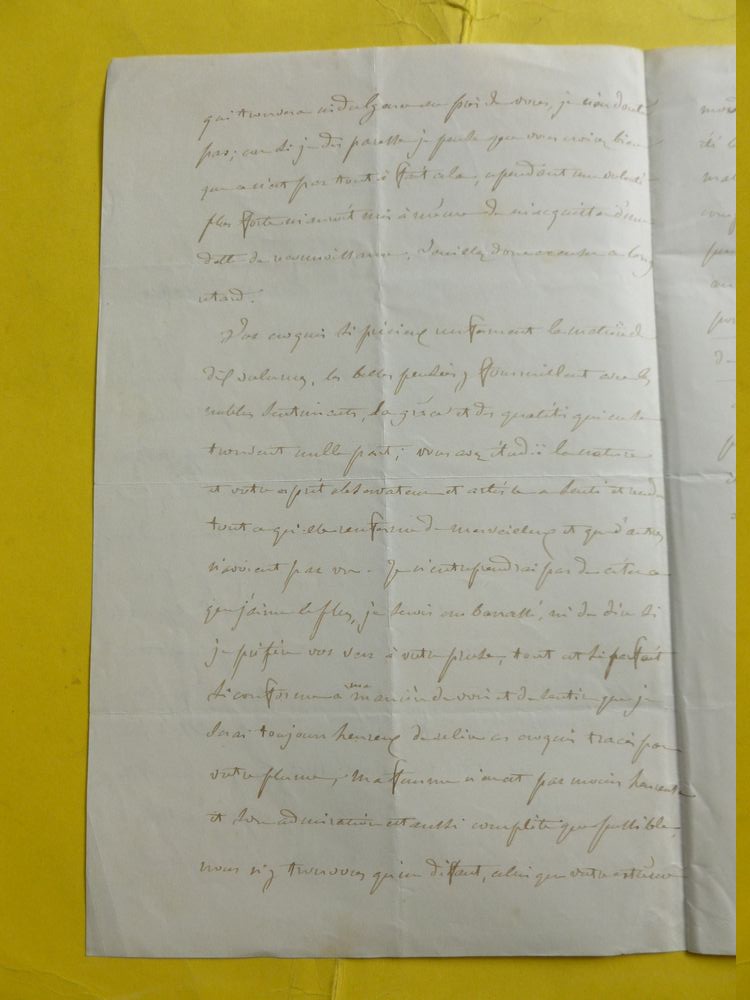 qui trouvera indulgence en près de vous, je n'en doute
pas; car si je dis paresse je pense que vous voiez bien
que ce n'est pas tout à fait cela, cependant une volonté
plus forte m'aurait mis à même de m'acquitter d'une
dette de reconnaissance, Veuillez donc excuser ce long
retard.
Vos croquis si précieux renferment la matière de
dix volumes, les belles pensées y fourmillent avec les
nobles sentiments, la grâce et des qualités qui ne se
trouvent nulle part; vous avez étudié la nature
et votre esprit observateur et artiste a senti et rendu
tout ce qu'elle renferme de merveilleux et que d'autres
n'avoient pas vu. Je n'entreprendrai pas de citer ce
que j'aime le plus, je serois embarrassé, ni de dire si
je préfère vos vers à votre prose, tout est si parfait
si conforme à ma manière de voir et de sentir que je
serai toujours heureux de relire ces croquis tracés par
votre plume, ma femme n'en est pas moins heureuse
et son admiration est aussi complète que possible,
nous n'y trouvons qu'un défaut, celui que votre